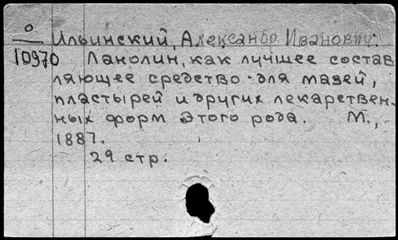 о
Ильинский, Александр Иванович.
10970 Ланолин, как лучшее состав
ляющее средство для мазей,
пластырей и других лекарствен-
ных форм этого рода. М.,
1887.
29 стр.